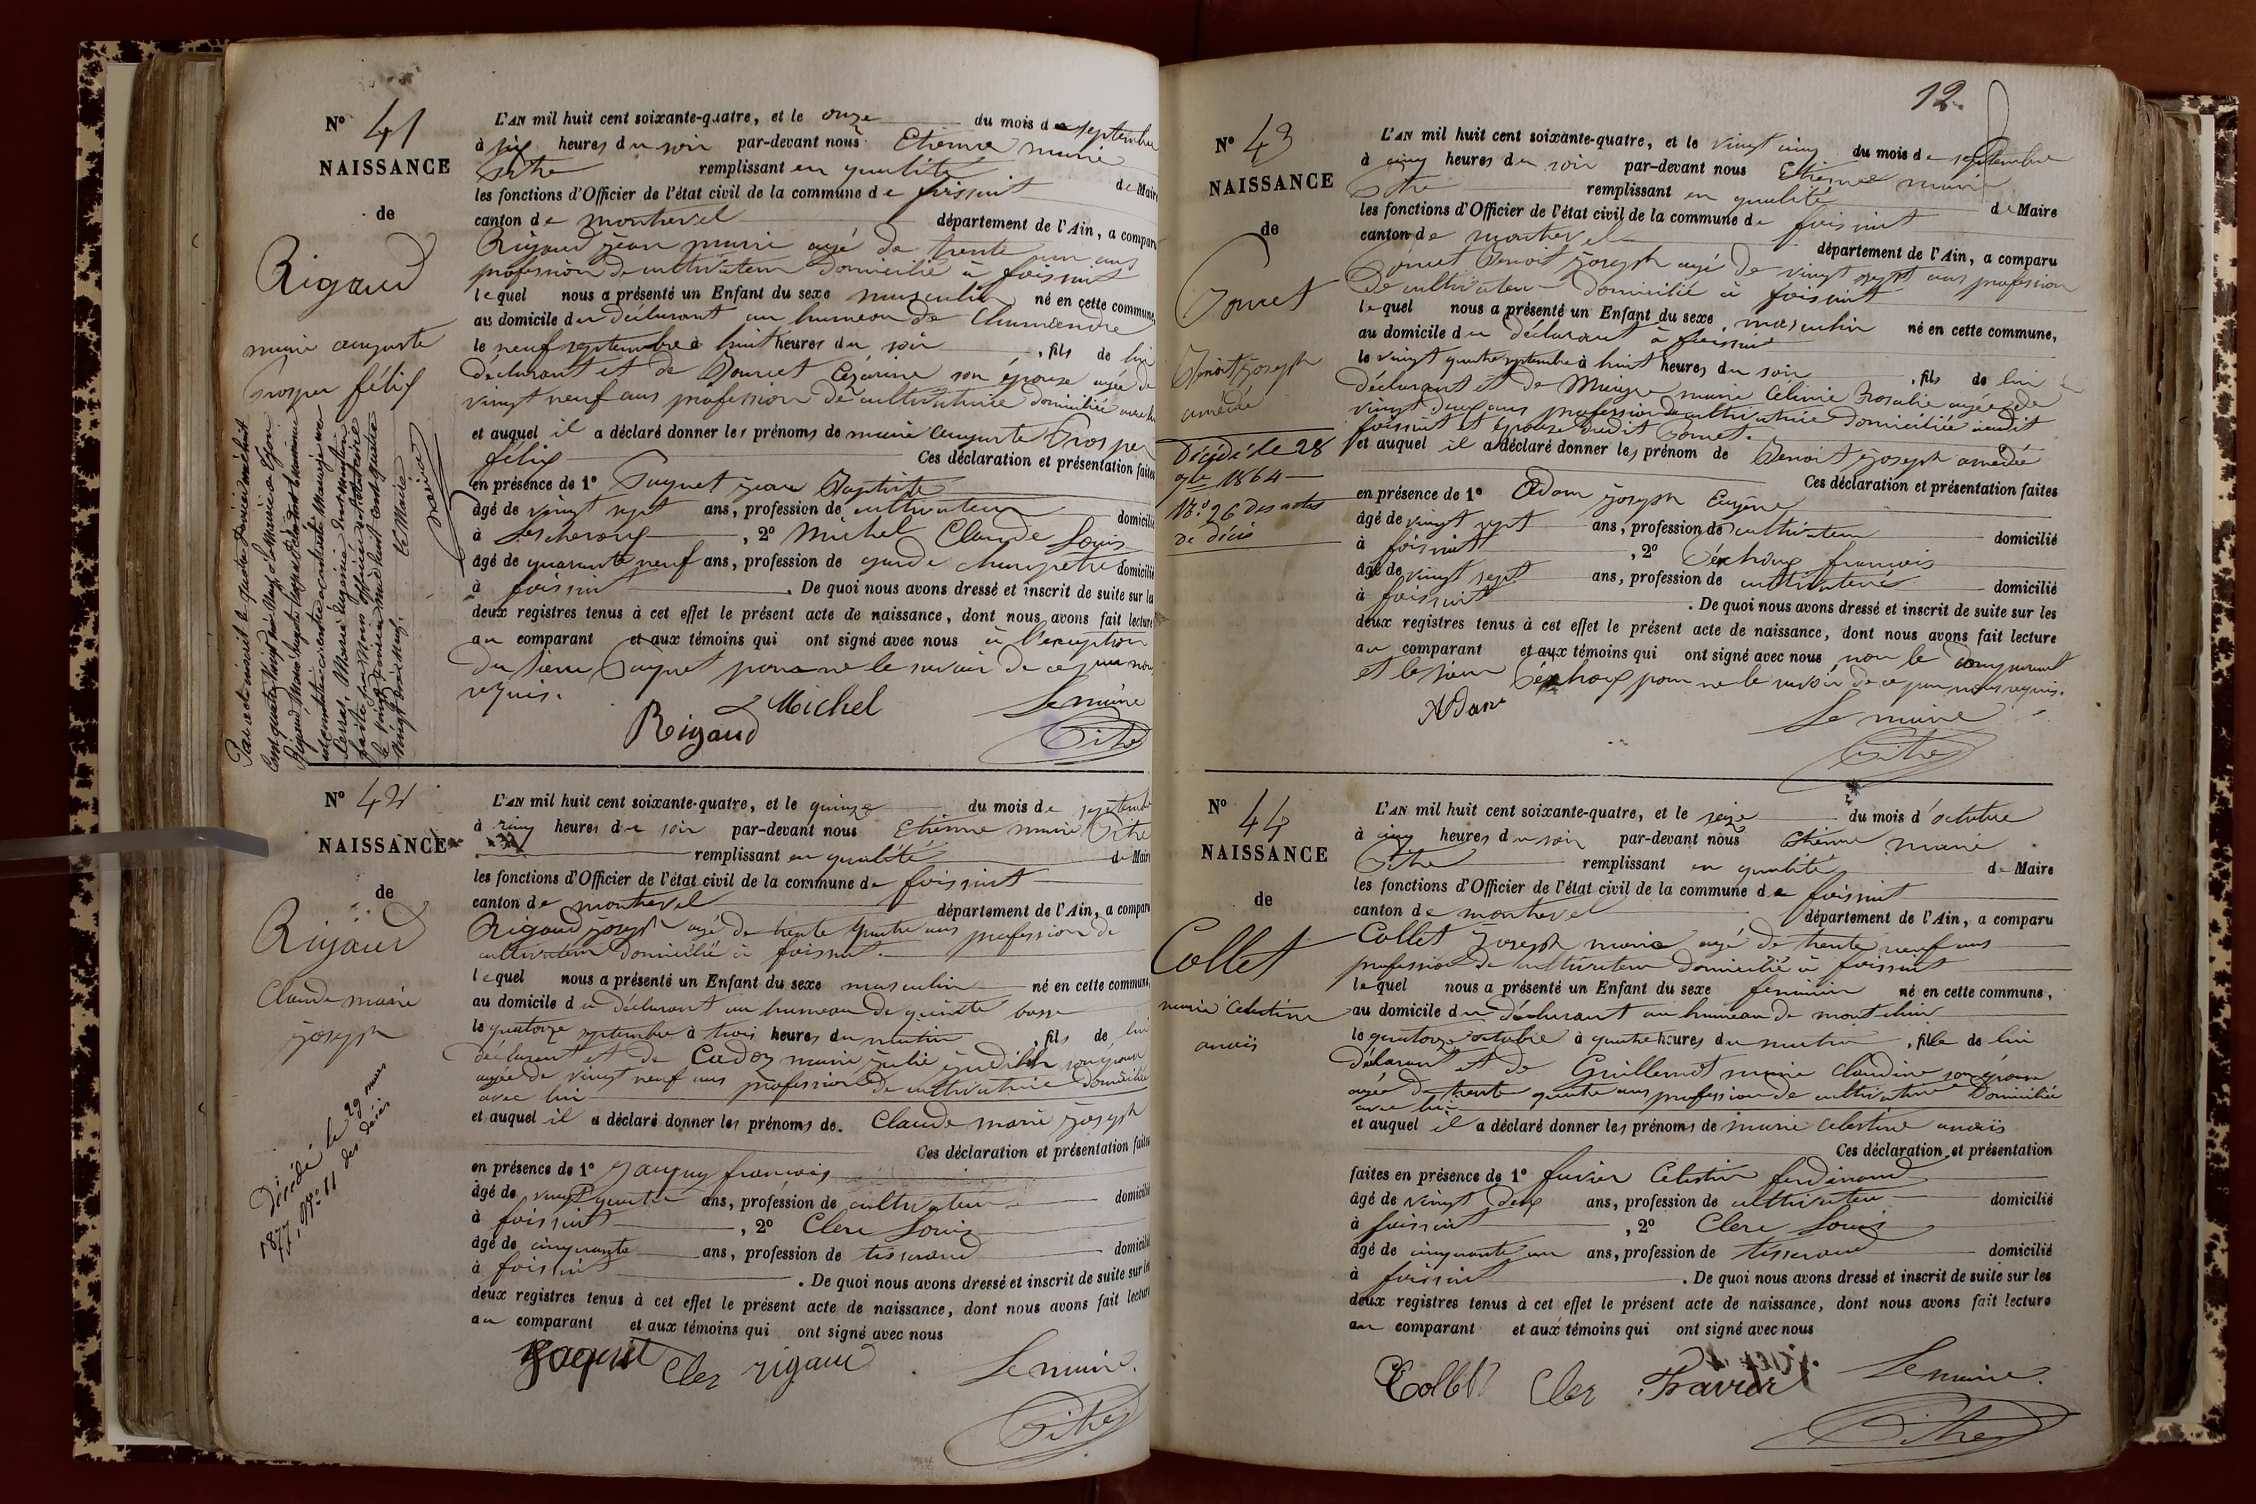 N° 41
NAISSANCE
de
Rigaud
marie auguste
prosper félix
L'AN mil huit cent soixante-quatre, et le onze du mois de septembre
à six heures du soir par-devant nous Etienne marie
Pitre remplissant en qualité de Maire
les fonctions d'Officier de l'état civil de la commune de foissiat
canton de montrevel département de l'Ain, a comparu
Rigaud jean marie agé de trente un ans
profession de cultivateur domicilié à foissiat
lequel nous a présenté un Enfant du sexe masculin né en cette commune,
au domicile du déclarant au hameau de
le neuf septembre à huit heures du soir, fils de lui
déclarant et de Cézarine son épouse agée de
vingt neuf ans profession de cultivatrice domiciliée avec lui
et auquel il a déclaré donner les prénoms de marie auguste Prosper
félix Ces déclaration et présentation faites
en présence de 1° jean Baptiste
âgé de vingt sept ans, profession de cultivateur domicilié
à Lescheroux, 2° Michel Claude Louis
âgé de quarante neuf ans, profession de garde champêtre domicilié
à foissiat. De quoi nous avons dressé et inscrit de suite sur les
deux registres tenus à cet effet le présent acte de naissance, dont nous avons fait lecture
au comparant et aux témoins qui ont signé avec nous à l'exception
du sieur pour ne le savoir de ce par nous
requis.
Michel Le maire
Rigaud Pitre
N° 42
NAISSANCE
de
Rigaud
Claude marie
joseph
Décédé le 29 mars
1877, N° 11 des décès
L'AN mil huit cent soixante-quatre, et le quinze du mois de septembre
à cinq heures du soir par-devant nous Etienne marie Pitre
remplissant en qualité de Maire
les fonctions d'Officier de l'état civil de la commune de foissiat
canton de montrevel département de l'Ain, a comparu
Rigaud joseph agé de trente quatre ans profession de
cultivateur domicilié à foissiat.
lequel nous a présenté un Enfant du sexe masculin né en cette commune,
au domicile du déclarant au hameau de basse
le quatorze septembre à trois heures du matin, fils de lui
déclarant et de marie julie son épouse
agée de vingt neuf ans profession de cultivatrice domiciliée
avec lui
et auquel il a déclaré donner les prénoms de Claude marie joseph
Ces déclaration et présentation faites
en présence de 1° françois
âgé de vingt quatre ans, profession de cultivateur domicilié
à foissiat, 2° Clerc Louis
âgé de cinquante ans, profession de tisserand domicilié
à foissiat. De quoi nous avons dressé et inscrit de suite sur les
deux registres tenus à cet effet le présent acte de naissance, dont nous avons fait lecture
au comparant et aux témoins qui ont signé avec nous
Cler rigaud Le maire.
Pitre
12
N° 43
NAISSANCE
de
Benoit joseph
amédée
Décédé le 28
9bre 1864
N° 26 des actes
de décès
L'AN mil huit cent soixante-quatre, et le vingt cinq du mois de septembre
à cinq heures du soir par-devant nous Etienne marie
Pitre remplissant en qualité de Maire
les fonctions d'Officier de l'état civil de la commune de foissiat
canton de montrevel département de l'Ain, a comparu
Benoit joseph agé de vingt sept ans profession
de cultivateur domicilié à foissiat
lequel nous a présenté un Enfant du sexe masculin né en cette commune,
au domicile du déclarant à foissiat
le vingt quatre septembre à huit heures du soir, fils de lui
déclarant et de marie Célinie Rosalie agée de
vingt deux ans profession de cultivatrice domiciliée audit
foissiat et épouse dudit
et auquel il a déclaré donner les prénom de Benoit joseph amédée
Ces déclaration et présentation faites
en présence de 1° Adam joseph Eugène
âgé de vingt sept ans, profession de cultivateur domicilié
à foissiat, 2° françois
âgé de vingt sept ans, profession de cultivateur domicilié
à foissiat. De quoi nous avons dressé et inscrit de suite sur les
deux registres tenus à cet effet le présent acte de naissance, dont nous avons fait lecture
au comparant et aux témoins qui ont signé avec nous, non le comparant
et le sieur pour ne le savoir de ce par nous requis.
Adam Le maire
Pitre
N° 44
NAISSANCE
de
Collet
marie Celestine
anaïs
L'AN mil huit cent soixante-quatre, et le seize du mois d'octobre
à cinq heures du soir par-devant nous Etienne marie
Pitre remplissant en qualité de Maire
les fonctions d'Officier de l'état civil de la commune de foissiat
canton de montrevel département de l'Ain, a comparu
Collet joseph marie agé de trente neuf ans
profession de cultivateur domicilié à foissiat
lequel nous a présenté un Enfant du sexe feminin né en cette commune,
au domicile du déclarant au hameau de
le quatorze octobre à quatre heures du matin, fille de lui
déclarant et de Guillemot marie claudine son épouse
agée de trente quatre ans profession de cultivatrice domiciliée
avec lui
et auquel il a déclaré donner les prénoms de marie celestine anaïs
Ces déclaration et présentation
faites en présence de 1° Celestin ferdinand
âgé de vingt deux ans, profession de cultivateur domicilié
à foissiat, 2° Clerc Louis
âgé de cinquante un ans, profession de tisserand domicilié
à foissiat. De quoi nous avons dressé et inscrit de suite sur les
deux registres tenus à cet effet le présent acte de naissance, dont nous avons fait lecture
au comparant et aux témoins qui ont signé avec nous
Collet Cler Le maire.
Pitre